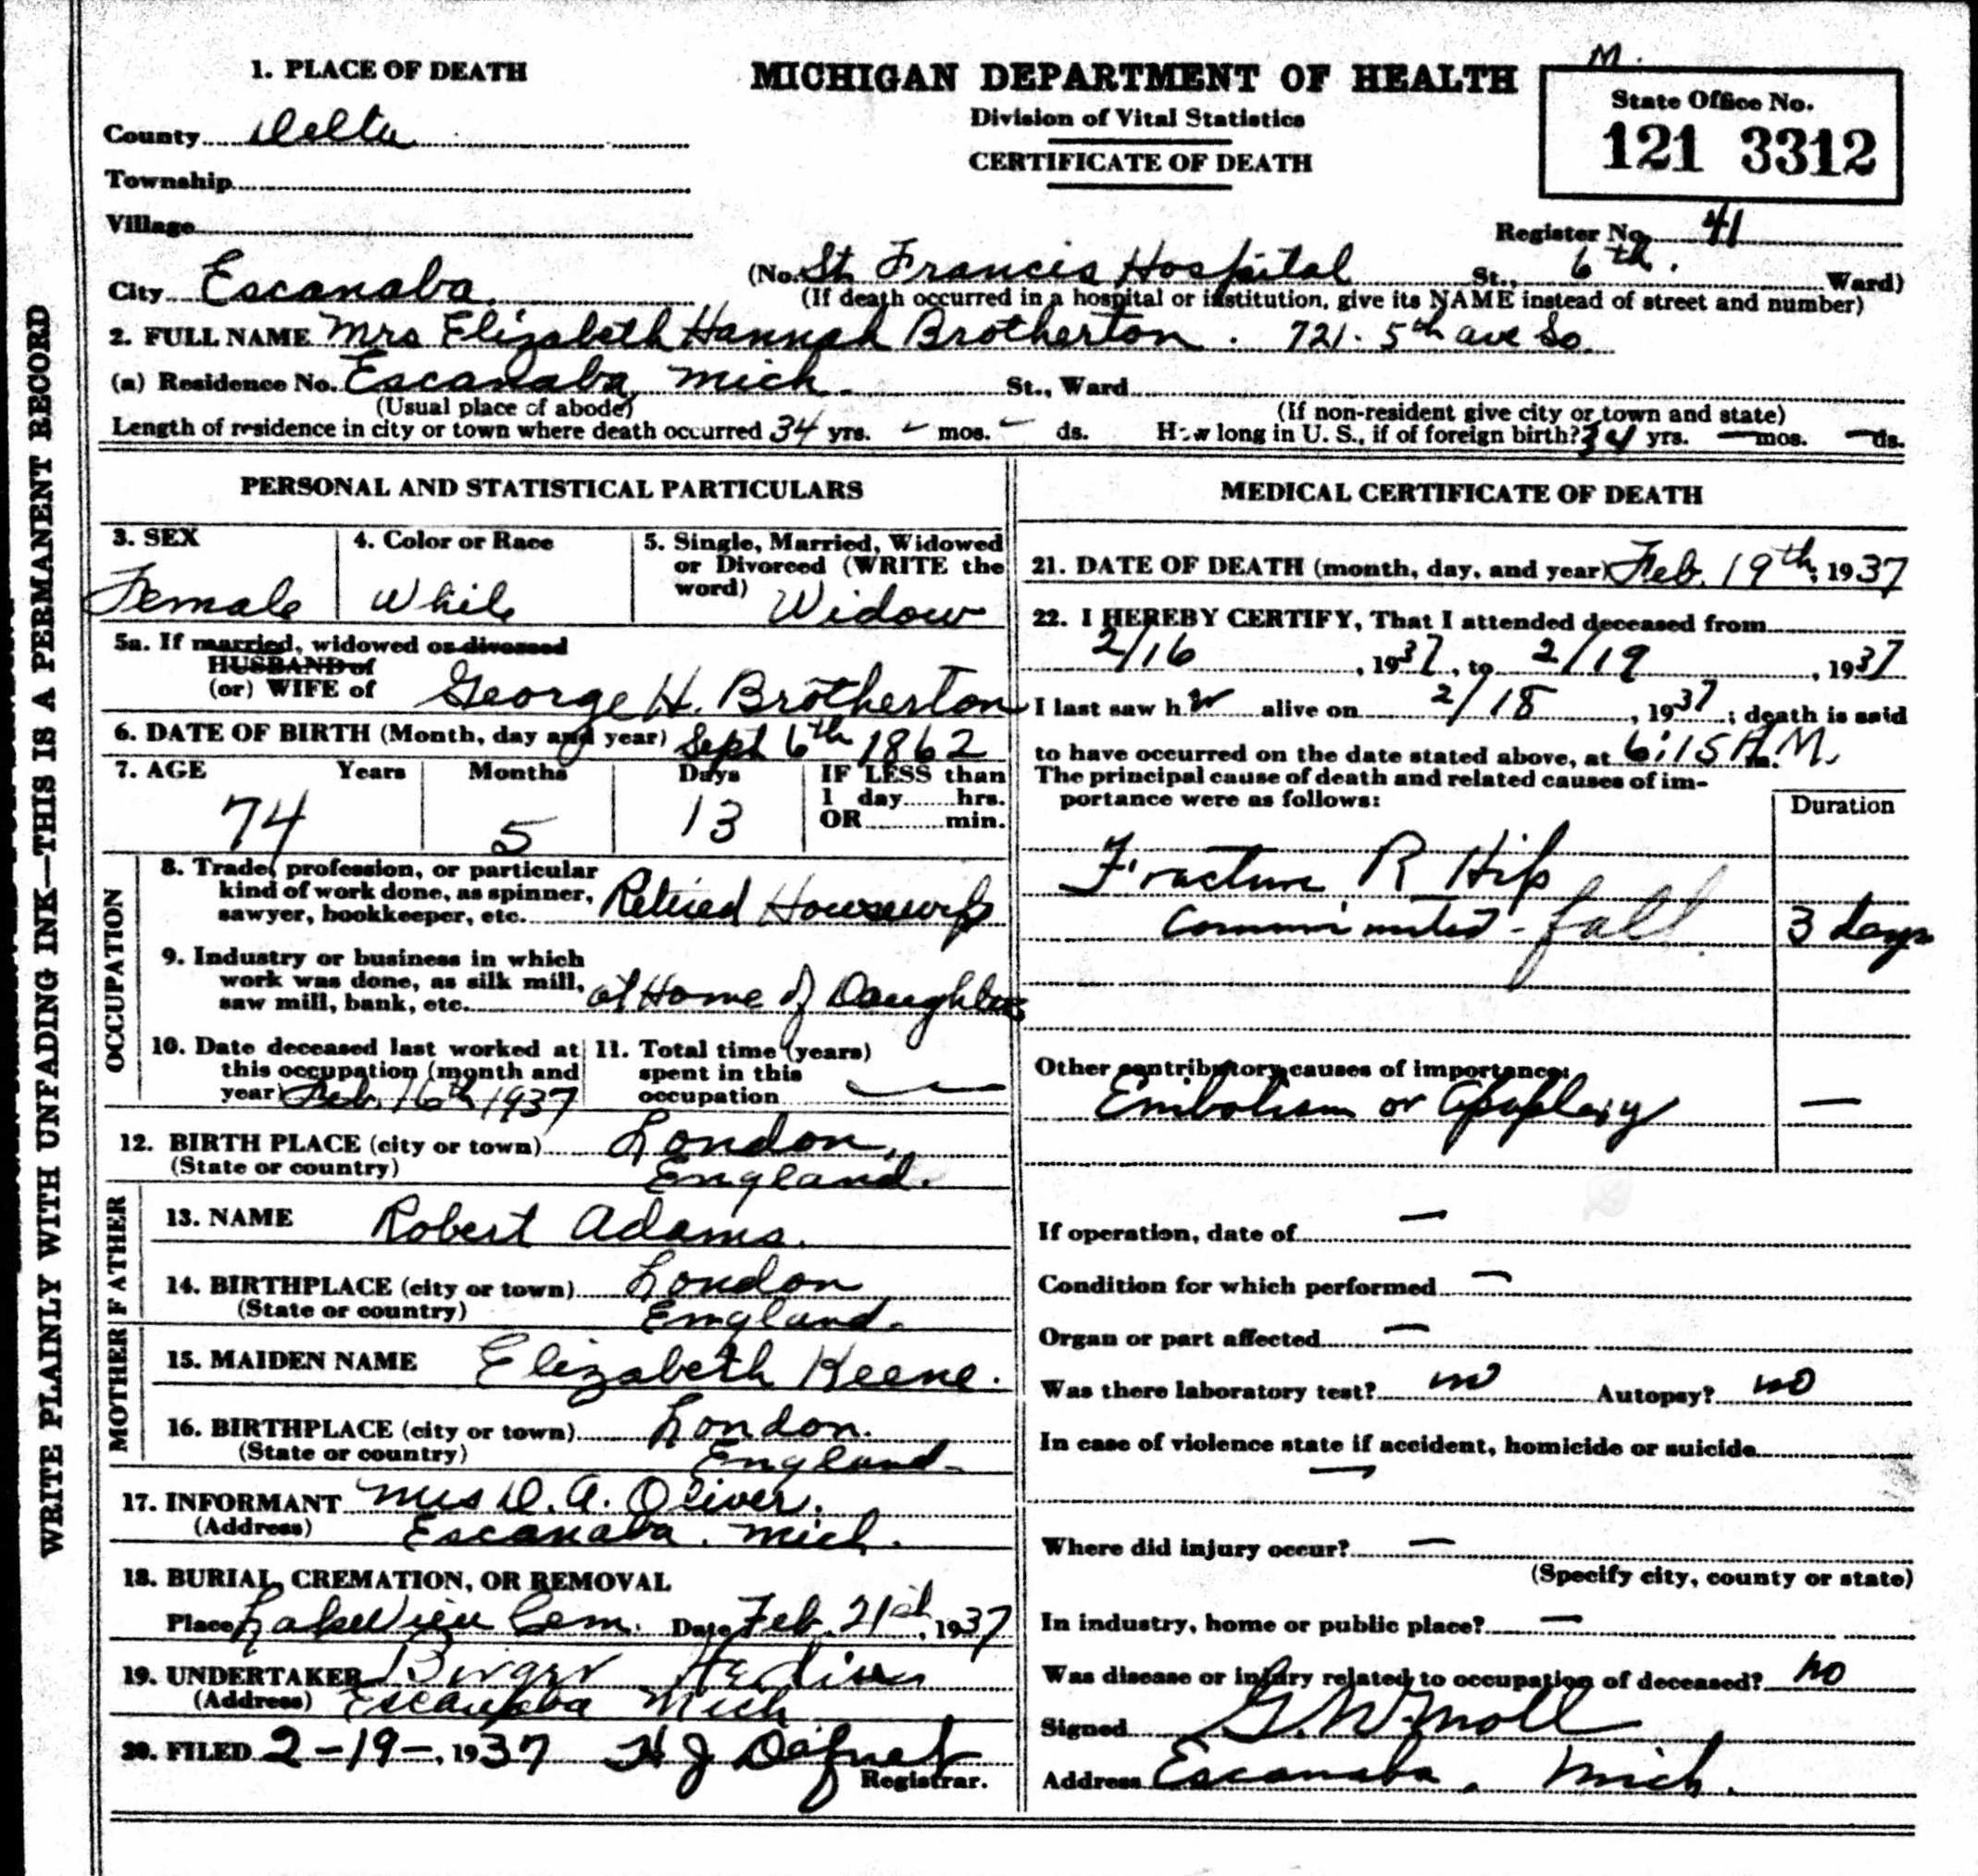 WRITE PLAINLY WITH UNFADING INK—THIS IS A PERMANENT RECORD
1. PLACE OF DEATH
County Delta
Township
Village
City Escanaba
MICHIGAN DEPARTMENT OF HEALTH
Division of Vital Statistics
CERTIFICATE OF DEATH
M.
State Office No.
121 3312
Register No. 41
(No. St. Francis Hospital St., 6th. Ward)
(If death occurred in a hospital or institution, give its NAME instead of street and number)
2. FULL NAME Mrs Elizabeth Hannah Brotherton. 721. 5th ave So.
(a) Residence No. Escanaba, Mich. St., Ward
(Usual place of abode) (If non-resident give city or town and state)
Length of residence in city or town where death occurred 34 yrs. - mos. - ds. How long in U. S., if of foreign birth? 34 yrs. — mos. — ds.
PERSONAL AND STATISTICAL PARTICULARS
3. SEX
Female
4. Color or Race
White
5. Single, Married, Widowed
or Divorced (WRITE the
word) Widow
5a. If married, widowed or divorced
HUSBAND of
(or) WIFE of George H. Brotherton
6. DATE OF BIRTH (Month, day and year) Sept 6th 1862
7. AGE Years Months Days IF LESS than
1 day hrs.
OR min.
74 5 13
OCCUPATION
8. Trade, profession, or particular
kind of work done, as spinner,
sawyer, bookkeeper, etc. Retired Housewife
9. Industry or business in which
work was done, as silk mill,
saw mill, bank, etc. at Home of Daughter
10. Date deceased last worked at
this occupation (month and
year) Feb. 16th 1937
11. Total time (years)
spent in this
occupation
12. BIRTH PLACE (city or town) London,
(State or country) England.
FATHER
13. NAME Robert Adams.
14. BIRTHPLACE (city or town) London
(State or country) England.
MOTHER
15. MAIDEN NAME Elizabeth Keene.
16. BIRTHPLACE (city or town) London.
(State or country) England
17. INFORMANT Mrs D. A. Oliver.
(Address) Escanaba. Mich.
18. BURIAL, CREMATION, OR REMOVAL
Place Lakeview Cem. Date Feb. 21st, 1937
19. UNDERTAKER Birger
(Address) Escanaba Mich
20. FILED 2-19-, 1937 H J Defnet
Registrar.
MEDICAL CERTIFICATE OF DEATH
21. DATE OF DEATH (month, day, and year) Feb. 19th, 1937
22. I HEREBY CERTIFY, That I attended deceased from
2/16, 1937, to 2/19, 1937
I last saw her alive on 2/18, 1937; death is said
to have occurred on the date stated above, at 6:15 A.M.
The principal cause of death and related causes of im-
portance were as follows: Duration
Fracture R Hip
Comminuted - fall 3 days
Other contributory causes of importance:
Embolism or apoplexy —
If operation, date of —
Condition for which performed —
Organ or part affected —
Was there laboratory test? no Autopsy? no
In case of violence state if accident, homicide or suicide
—
Where did injury occur? —
(Specify city, county or state)
In industry, home or public place? —
Was disease or injury related to occupation of deceased? no
Signed G. W. Moll
Address Escanaba, Mich.